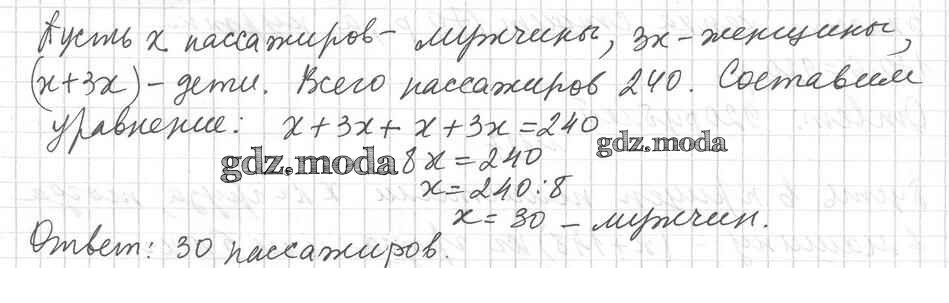 Пусть x пассажиров - мужчины, 3x - женщины,
(x+3x) - дети. Всего пассажиров 240. Составим
уравнение: x + 3x + x + 3x = 240
gdz.moda
gdz.moda 8x = 240
x = 240 : 8
x = 30 - мужчин.
Ответ: 30 пассажиров.